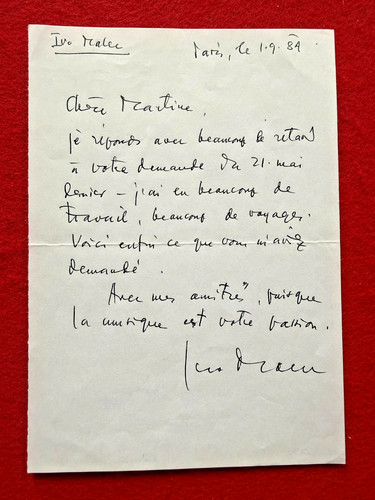 Ivo Malec
Paris, le 1.9.84
Chère Martine,
je réponds avec beaucoup de retard
à votre demande du 21. mai
dernier – j'ai eu beaucoup de
travail, beaucoup de voyages.
Voici enfin ce que vous m'aviez
demandé.
Avec mes amitiés, puisque
la musique est votre passion.
Ivo Malec